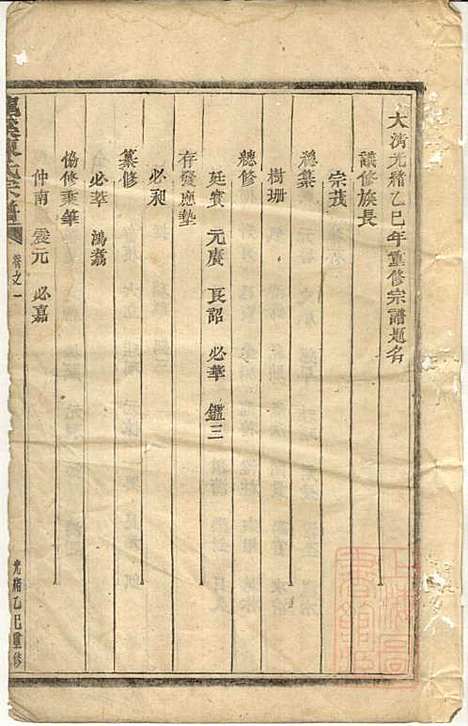 大清光緒乙巳年重修宗譜題名
議修族長
宗茂
總纂
樹珊
總修
廷賓 元廣 長韶 必華 鑑三
存發應墊
必昶
纂修
必萃 鴻翥
協修秉筆
仲南 震元 必嘉
卷之一
光緒乙巳重修